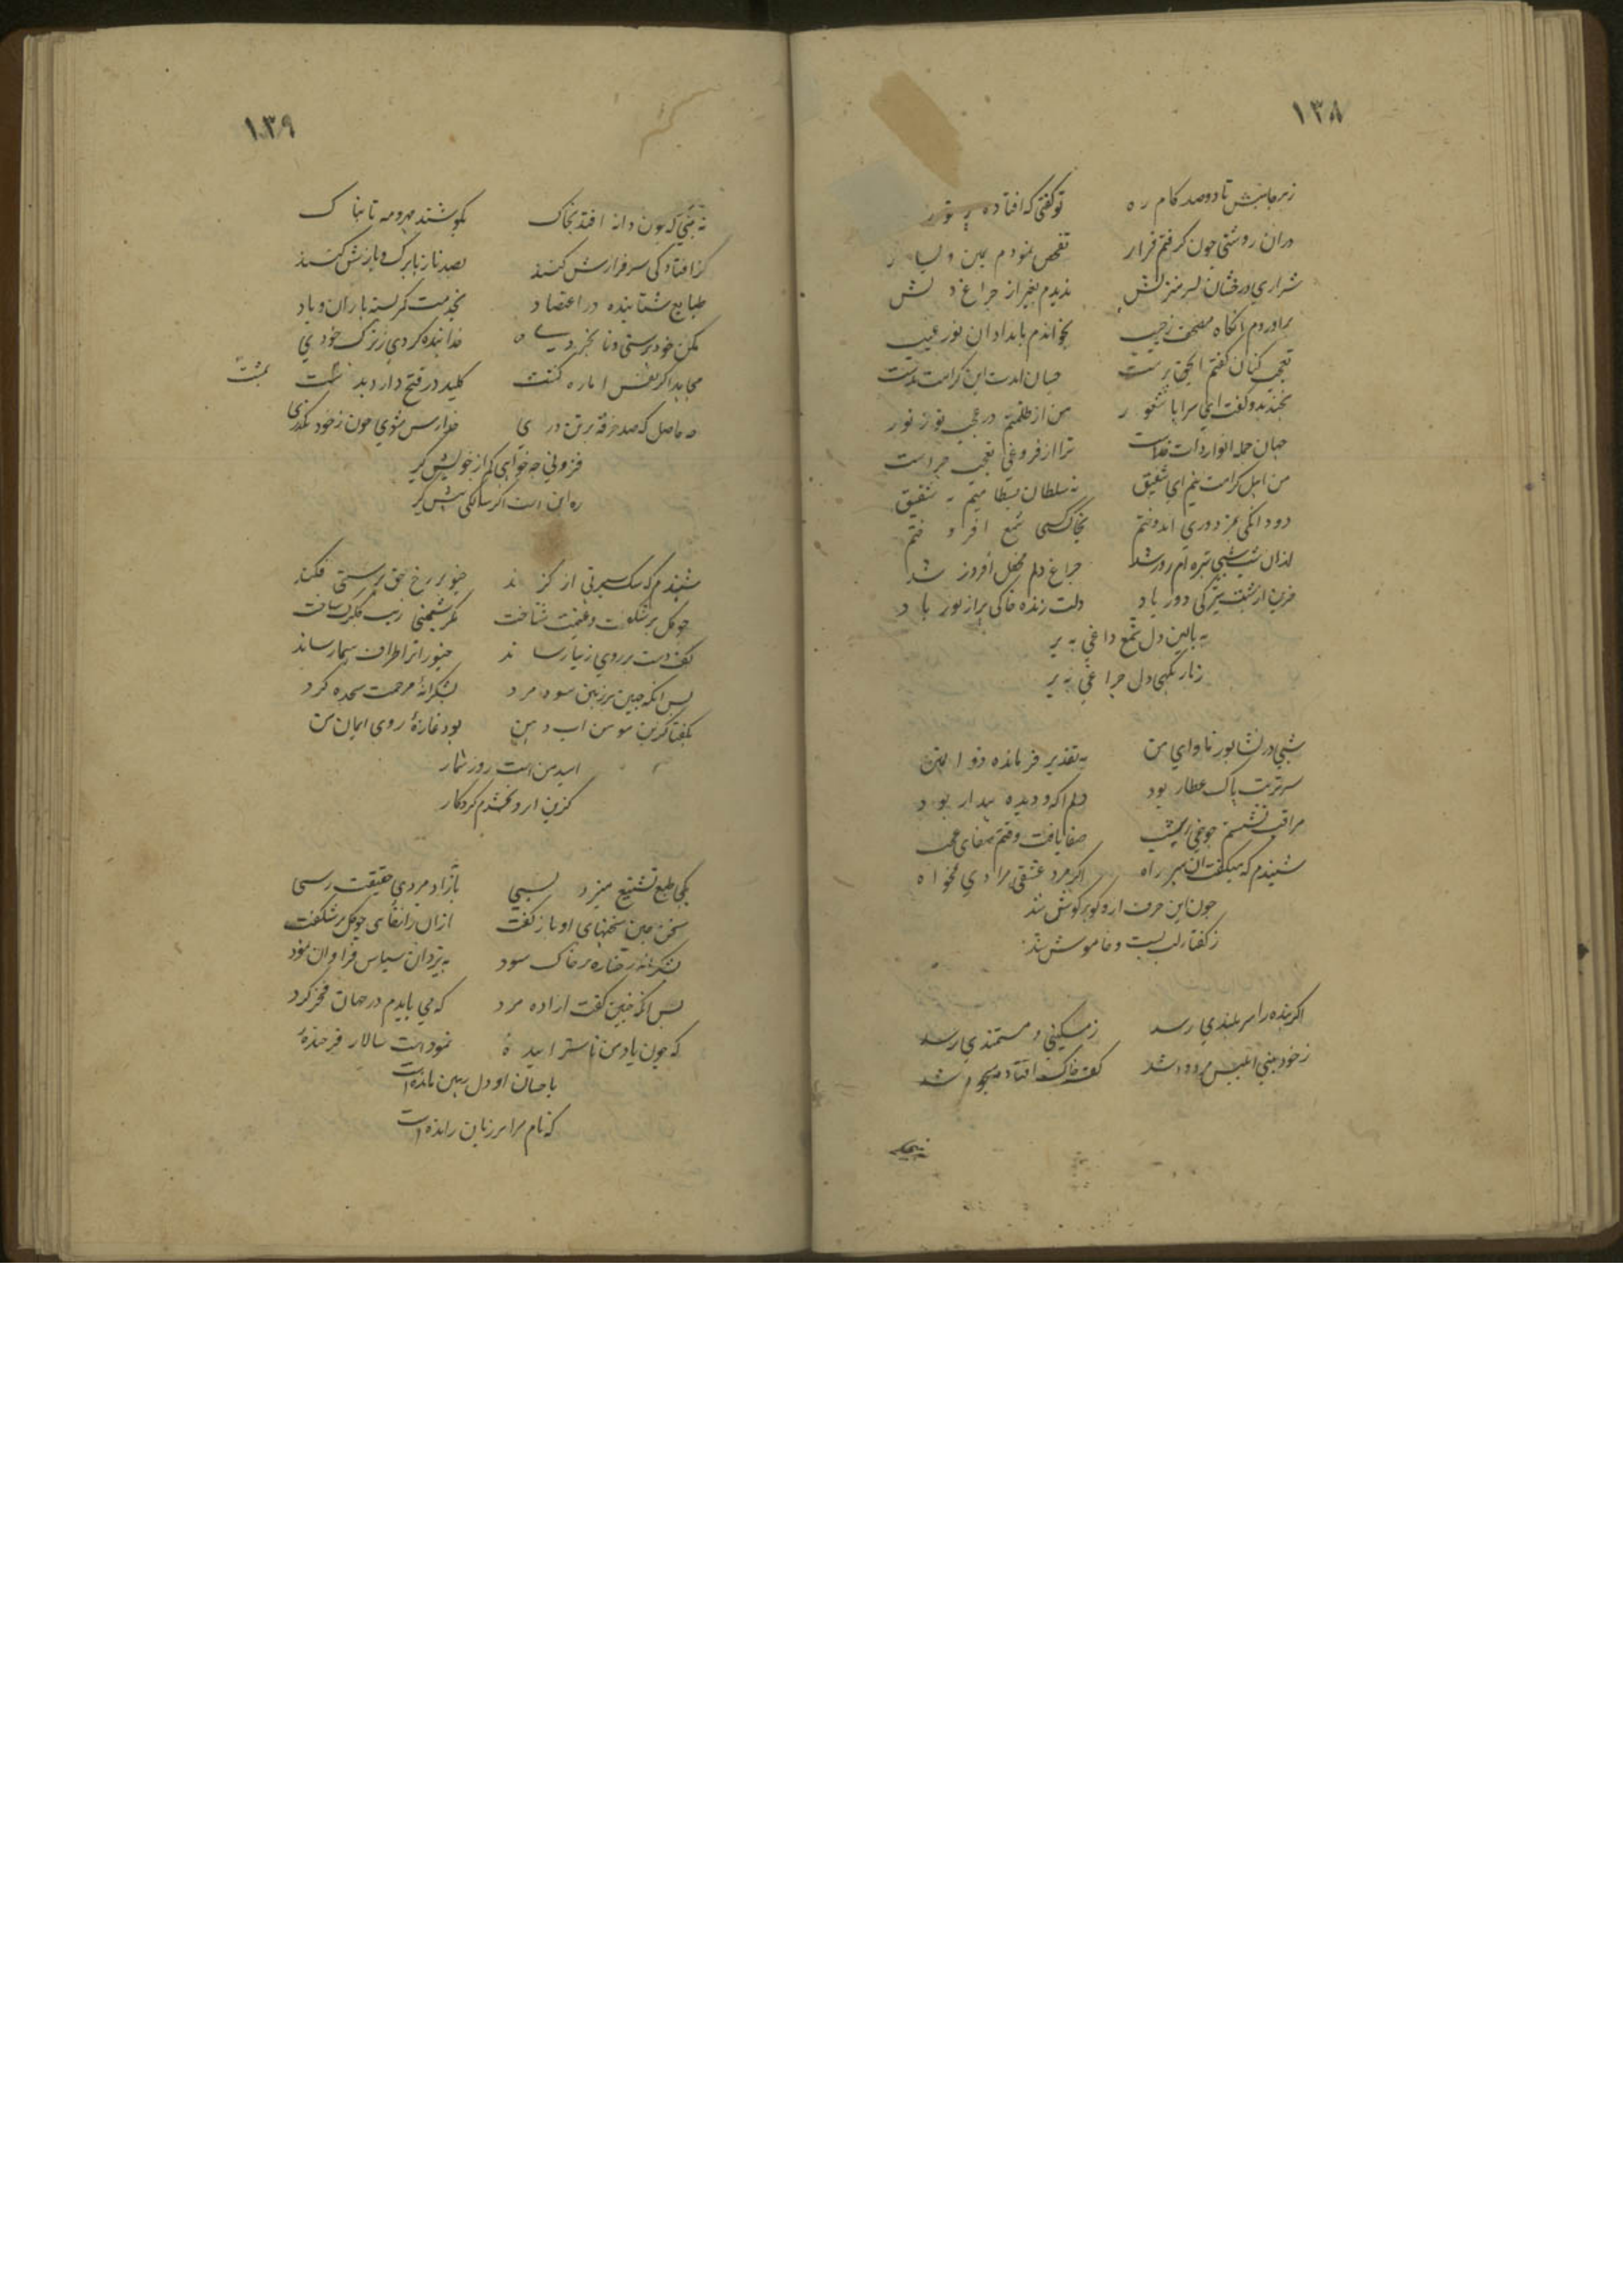 ۱۳۸
ز هر جانبش تا دو صد کام ره تو کفتی که افتاده
دران روشنی چون کرفتم قرار تفحص نمودم یمین و یسار
شراری درخشان بسر منزلش ندیدم بغیر از چراغ دلش
براوردم انکاه مصحف ز جیب بخواندم بامداد ان نور غیب
تعجب کنان کفتم ای حق پرست چسان امدت این کرامت بدست
بخندید و کفت ای سراپا شعور من از ظلمتم در عجب تو ز نور
جهان جمله انوار ذات خداست ترا از فروغی تعجب چراست
من اهل کرامت نیم ای شفیق نه سلطان بسطامیم نه شقیق
دو دانکی بمزدوری اندوختم بخاک کسی شمع افروختم
ازان شب شب تیره ام روز شد چراغ دلم محفل افروز شد
حزین از شبت تیرکی دور باد دلت زنده خاکی پر از نور باد
به بالین دل شمع داغی به بر
ز تار نکهی دل چراغی به بر
شبی در نشابور ماوای من به تقدیر فرمانده ذو المنن
سر تربت پاک عطار بود دلم اکه و دیده بیدار بود
مراقب نشستم چو صفا یافت وقتم
شنیدم که میکفت ان پیر راه اکر مرد عشقی مرادی مخواه
چون این حرف ارو کوهر کوش شد
ز کفتار لب بست و خاموش شد
اکر بنده را سر بلندی رسد ز مسکینی و مستمندی رسد
ز خود بینی ابلیس مردود شد کف خاک افتاده مسجود شد
۱۳۹
نه بینی که چون دانه افتد بخاک بکوشند مهر و مه تابناک
کز افتادکی سرفرازش کنند بصد ناز با برک و سازش کنند
طبایع شتابنده در اعتضاد بخدمت کمر بسته باران و باد
مکن خود پرستی و نابخردی خدا بنده کردی ز ترک خودی
مجاهد اکر نفس اماره کشت کلید در فتح دارد بمشت
بمشت
چه حاصل که صد خرقه بر تن دری خدا رس شوی چون ز خود بکذری
فزونی چه خواهی کم از خویش کیر
ره این است اکر سالکی پیش کیر
شنیدم که سک سیرتی از کزند خیو بر رخ حق پرستی فکند
چو کل بر شکفت و غنیمت شناخت
کف دست بر روی زیبا رساند خیو را بر اطراف سیما رساند
پس انکه جبین بر زمین سود مرد بشکرانه مرحمت سجده کرد
بکفتا کزین سو من اب دهن بود غازه روی ایمان من
امید من است روز شمار
کزین ابرو بخشدم کردکار
یکی طبع تشنیع میزد بسی بازاد مردی حقیقت رسی
سخن چین سخنهای او باز کفت ازان ژاژخائی چو کل بر شکفت
بشکرانه رخساره بر خاک سود به یزدان سپاس فراوان نمود
پس انکه چنین کفت ازاده مرد که می بایدم در جهان فخر کرد
که چون یاد من ناسزاینده نمودست سالار فرخنده
باحسان او دل رهین مانده است
که نام مرا بر زبان رانده است